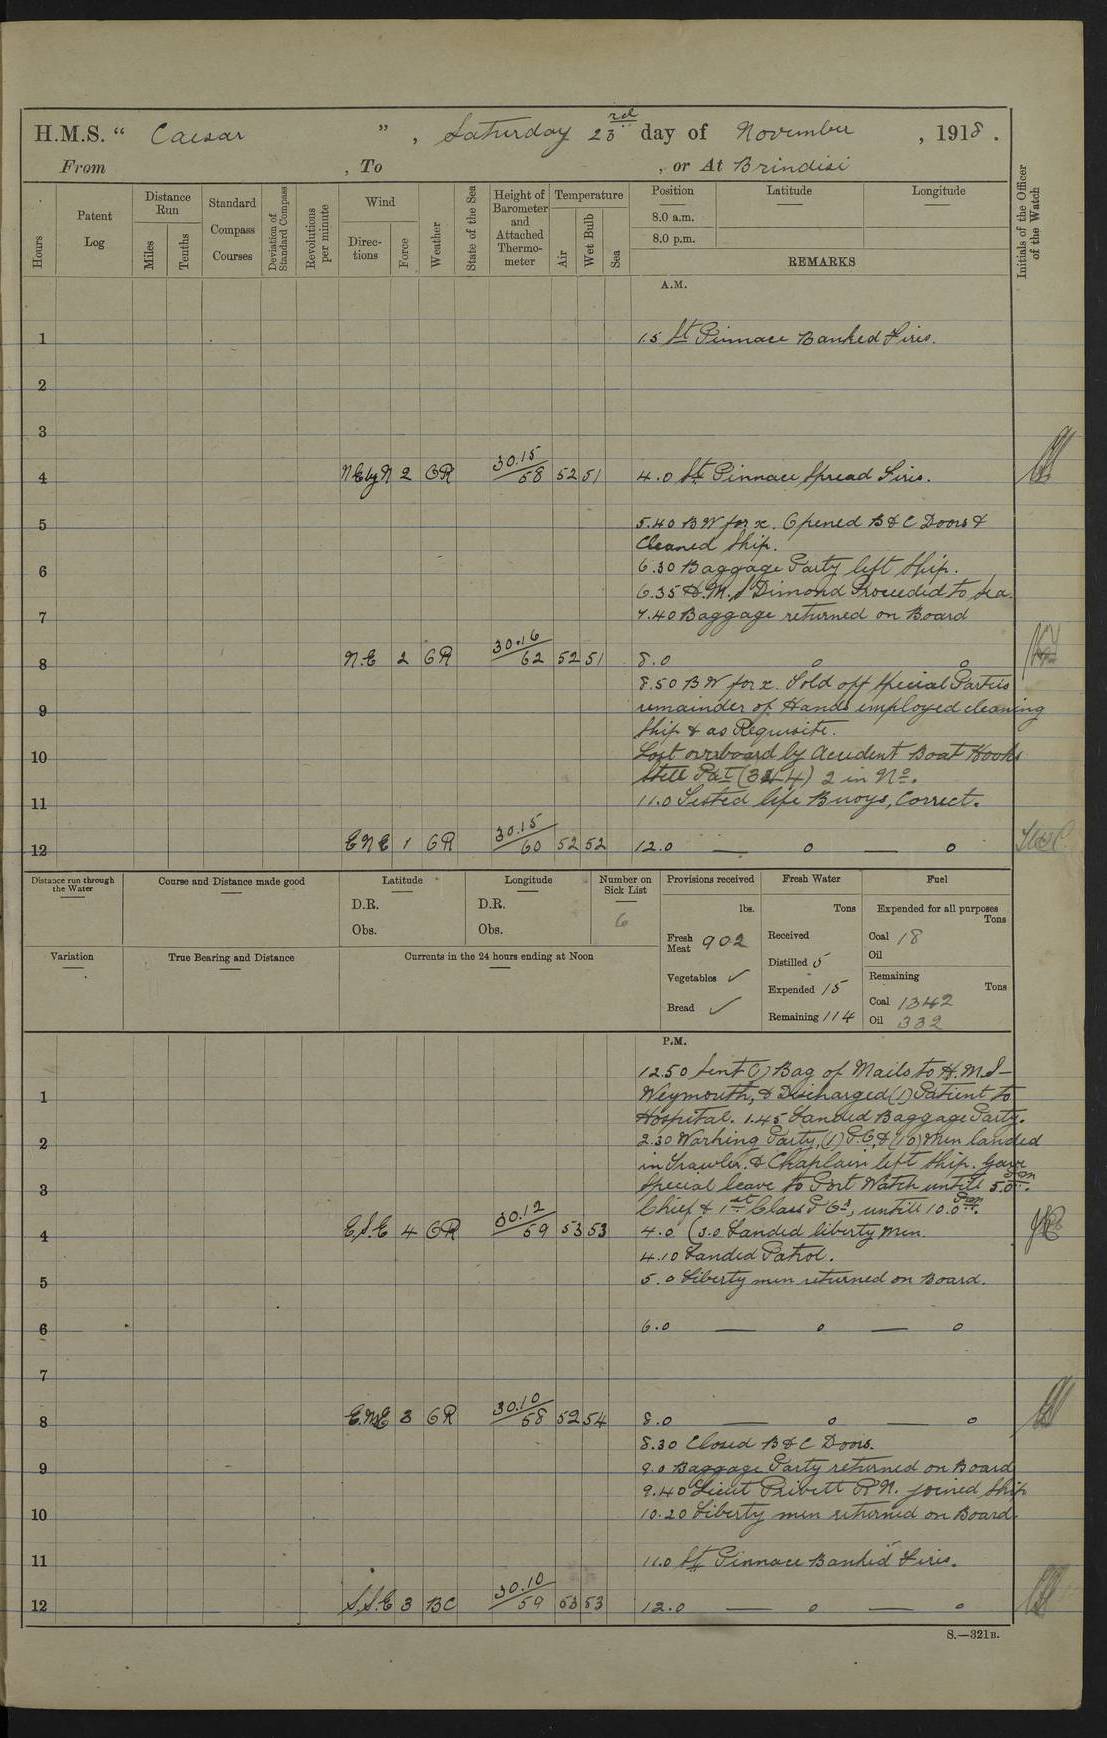 H.M.S. “ Caesar ” , Saturday 23rd day of November , 1918 .
From , To , or At Brindisi
Hours
Patent Log
Distance Run
Miles
Tenths
Standard Compass Courses
Deviation of Standard Compass
Revolutions per minute
Wind
Direc-tions
Force
Weather
State of the Sea
Height of Barometer and Attached Thermo-meter
Temperature
Air
Wet Bulb
Sea
Position
8.0 a.m.
8.0 p.m.
Latitude
Longitude
REMARKS
Initials of the Officer of the Watch
A.M.
1 1.5 St Pinnace Banked Fires.
2
3
4 N E by N 2 OR 30.15/58 52 51 4.0 St Pinnace Spread Fires.
5 5.40 B W for x. Opened B & C Doors &
Cleaned Ship.
6 6.30 Baggage Party left Ship.
6.35 H.M.S Dimond Proceeded to Sea.
7 7.40 Baggage returned on Board
8 N.E 2 OR 30.16/62 52 51 8.0 o o
8.50 B W for x. Told off Special Parties
9 remainder of Hands employed cleaning
Ship & as Requisite.
10 Lost overboard by Accident Boat Hooks
Steel Patt (344) 2 in No.
11 11.0 Tested life Buoys, Correct.
12 E N E 1 OR 30.15/60 52 52 12.0 — o — o
Distance run through the Water
Course and Distance made good
Latitude
D.R.
Obs.
Longitude
D.R.
Obs.
Number on Sick List
6
Provisions received
lbs.
Fresh Meat 902
Vegetables ✓
Bread ✓
Fresh Water
Tons
Received
Distilled 5
Expended 15
Remaining 114
Fuel
Expended for all purposes
Tons
Coal 18
Oil
Remaining
Tons
Coal 1342
Oil 332
Variation
True Bearing and Distance
Currents in the 24 hours ending at Noon
P.M.
12.50 Sent (1) Bag of Mails to H.M.S—
1 Weymouth, & Discharged (1) Patient to
Hospital. 1.45 Landed Baggage Party.
2 2.30 Working Party, (1) P.O, & (10) Men landed
in Trawler. & Chaplain left Ship. Gave
3 Special leave to Port Watch untill 5.0 pm.
Chief & 1st Class P Os, untill 10.0 pm.
4 E.S.E 4 OR 30.12/59 53 53 4.0 (3.0 Landed liberty men.
4.10 Landed Patrol.
5 5.0 Liberty men returned on Board.
6 6.0 — o — o
7
8 E.NE 3 OR 30.10/58 52 54 8.0 — o — o
8.30 Closed B & C Doors.
9 9.0 Baggage Party returned on Board
9.40 Lieut Privett R.N. joined Ship
10 10.20 Liberty men returned on Board.
11 11.0 St Pinnace Banked Fires.
12 S.S.E 3 BC 30.10/59 53 53 12.0 — o — o
S.—321B.